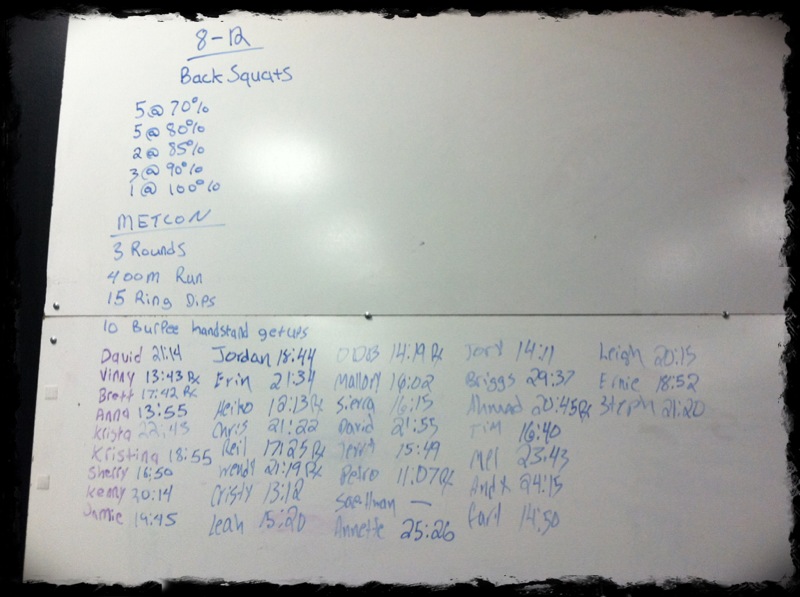 8-12
Back Squats
5 @ 70%
5 @ 80%
2 @ 85%
3 @ 90%
1 @ 100%
METCON
3 Rounds
400m Run
15 Ring Dips
10 Burpee handstand getups
David 21:14
Vinny 13:43 Rx
Brett 17:42 Rx
Anna 13:55
Krista 22:45
Kristina 18:55
Sherry 16:50
Kenny 20:14
Jamie 19:45
Jordan 18:44
Erin 21:34
Heiko 12:13 Rx
Chris 21:22
Reil 17:25 Rx
Wendy 21:19 Rx
Cristy 13:12
Leah 15:20
ODB 14:19 Rx
Mallory 16:02
Sierra 16:15
David 21:55
Jerry 15:49
Petro 11:07 Rx
Spellman —
Annette 25:26
Jory 14:11
Briggs 29:37
Ahmad 20:45 Rx
Tim 16:40
Mel 23:43
24:15
14:50
Leigh 20:15
Ernie 18:52
Steph 21:20